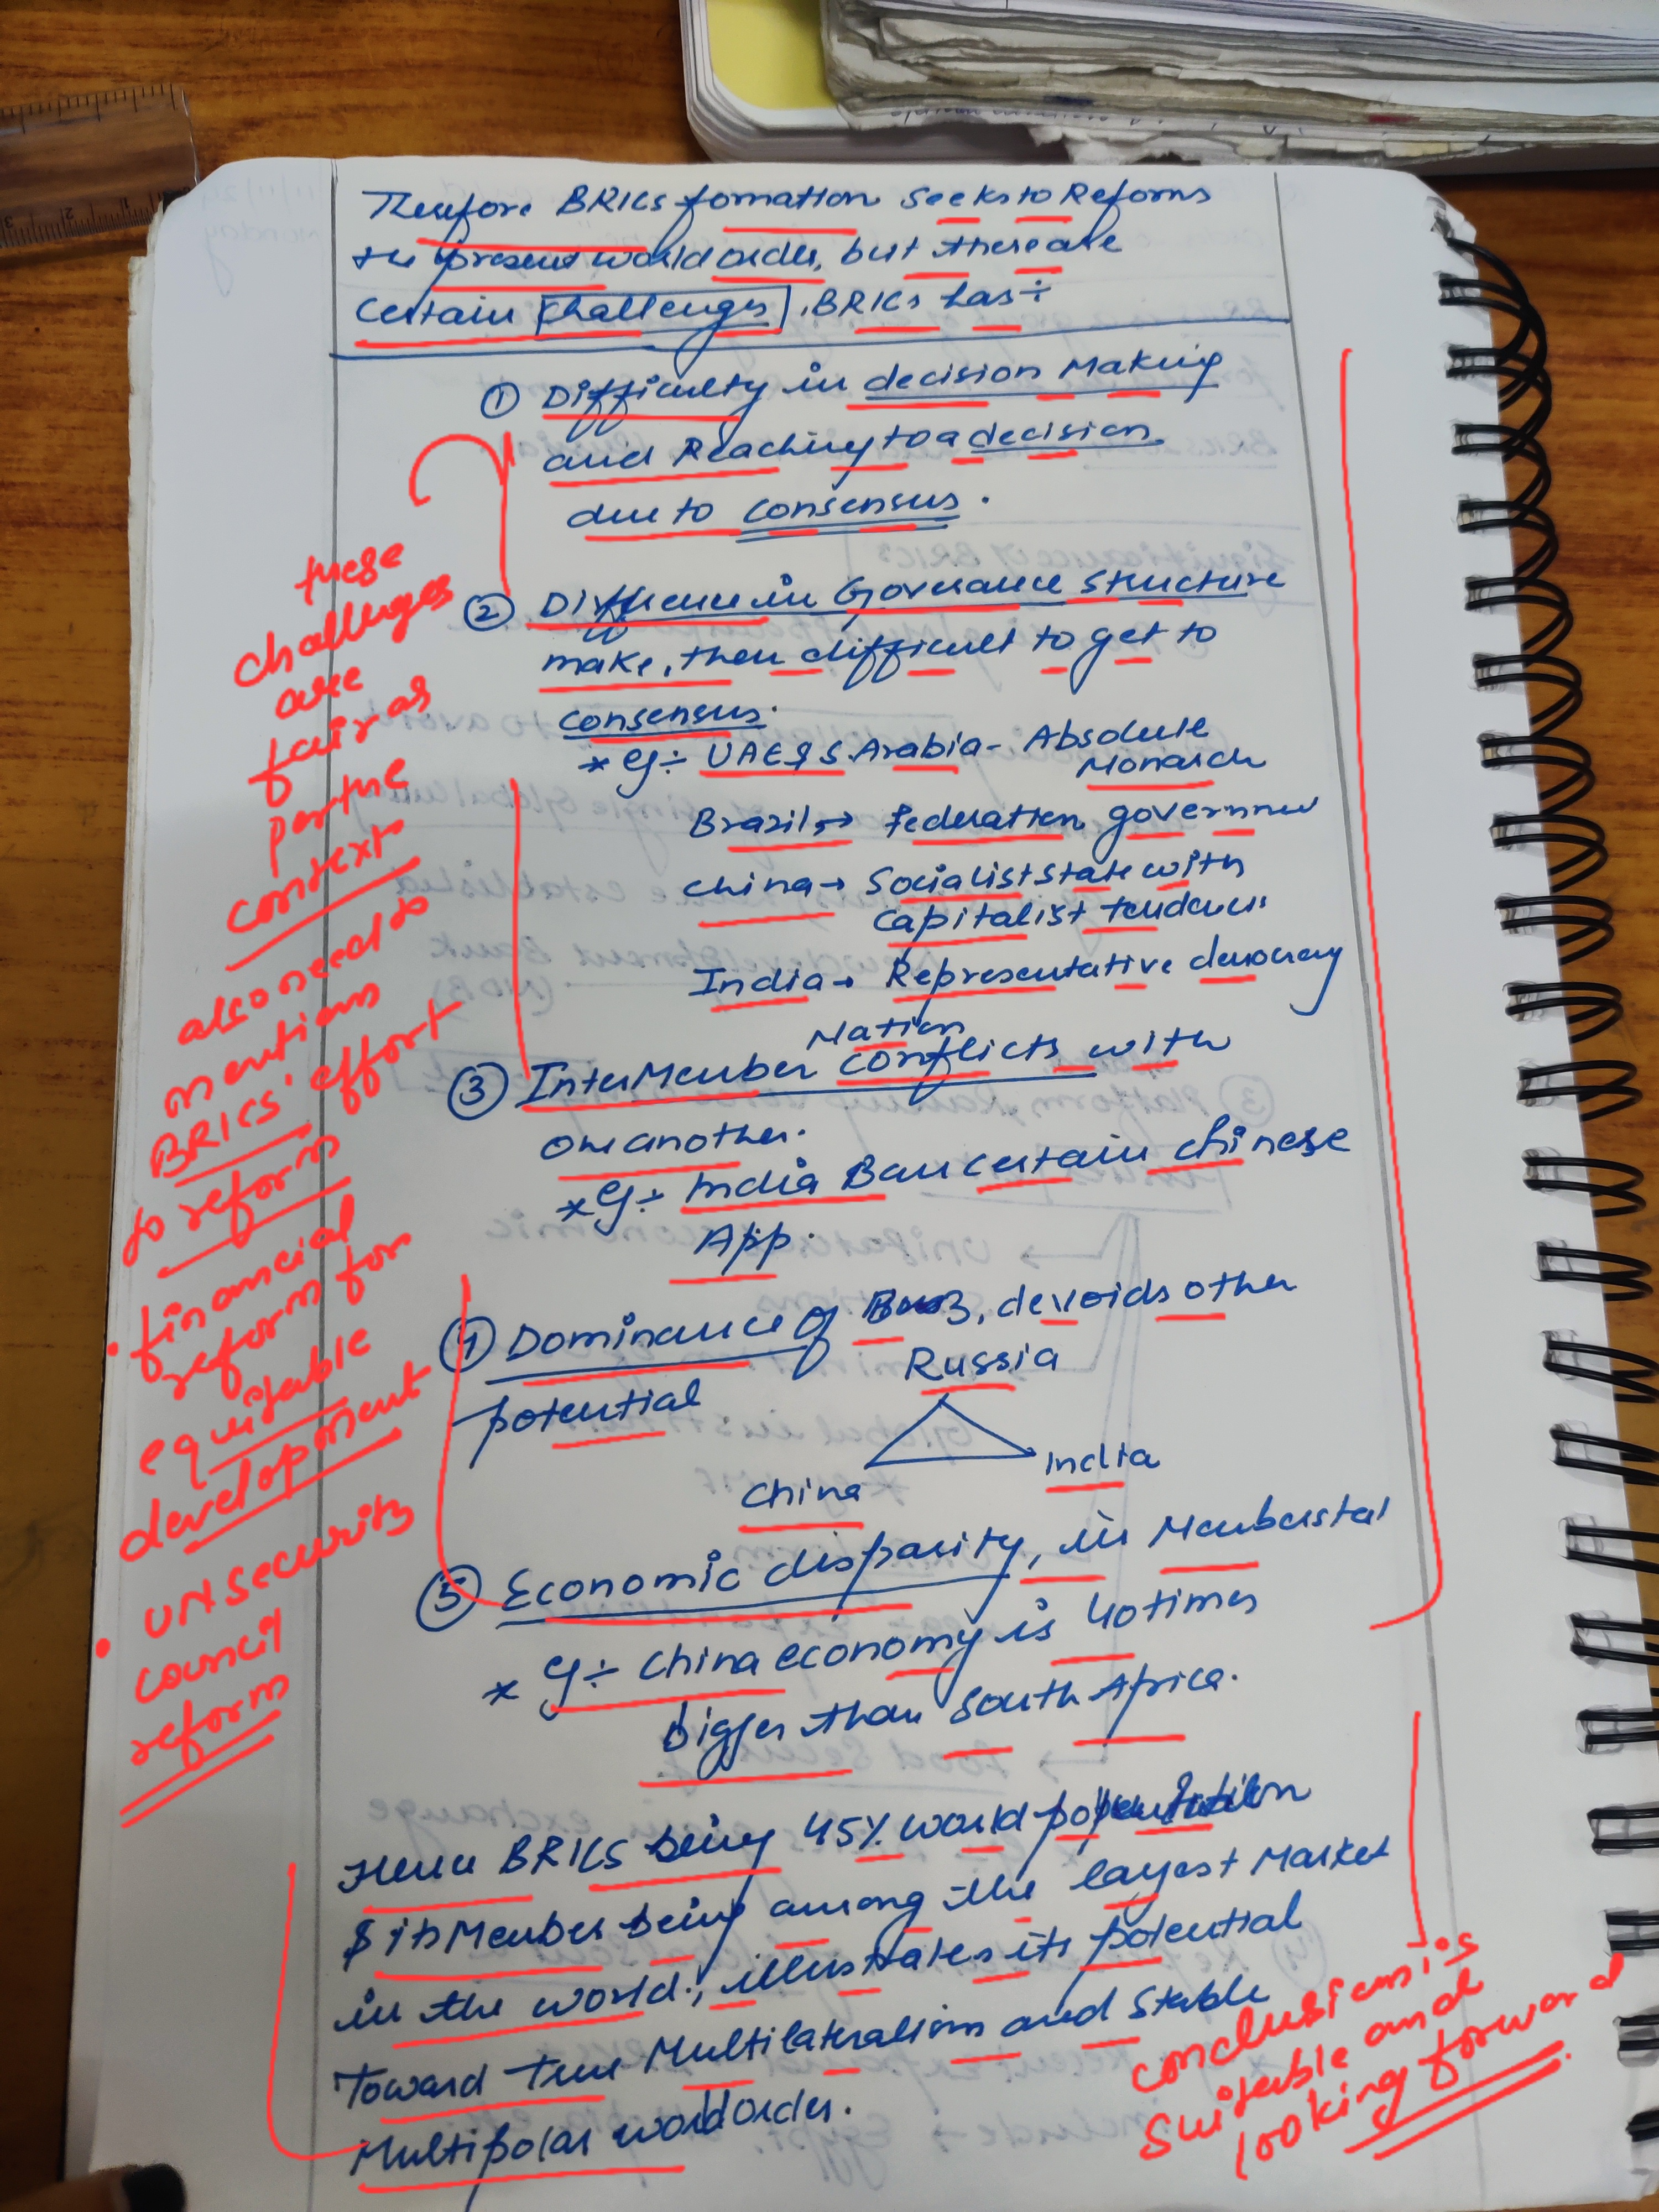 Therefore BRICS formation seeks to Reforms
the present world order, but there are
certain challenges, BRICS has ÷
① Difficulty in decision Making
and Reaching to a decision
due to consensus.
② Difference in Governance structure
make, then difficult to get to
consensus.
* eg ÷ UAE & S. Arabia - Absolute
Monarch
Brazil → Federation
China → Socialist state with
Capitalist
India → Representative democracy
③ InterMember Nation conflicts with
one another.
* eg ÷ India Ban certain chinese
App.
④ Dominance of 3, devoids other
potential
Russia
India
China
⑤ Economic disparity, in
* eg ÷ China economy is 40 times
bigger than South Africa.
Hence BRICS being 45% world population
& its Member being among the largest Market
in the world, illustrates its potential
Toward True Multilateralism and stable
Multipolar world order.
these
challenges
are
fair as
per the
context
also need to
mentions
BRICS' effort
to reform
• financial
reform for
equitable
development
• UN Security
council
reform
conclusion is
suitable and
looking forward